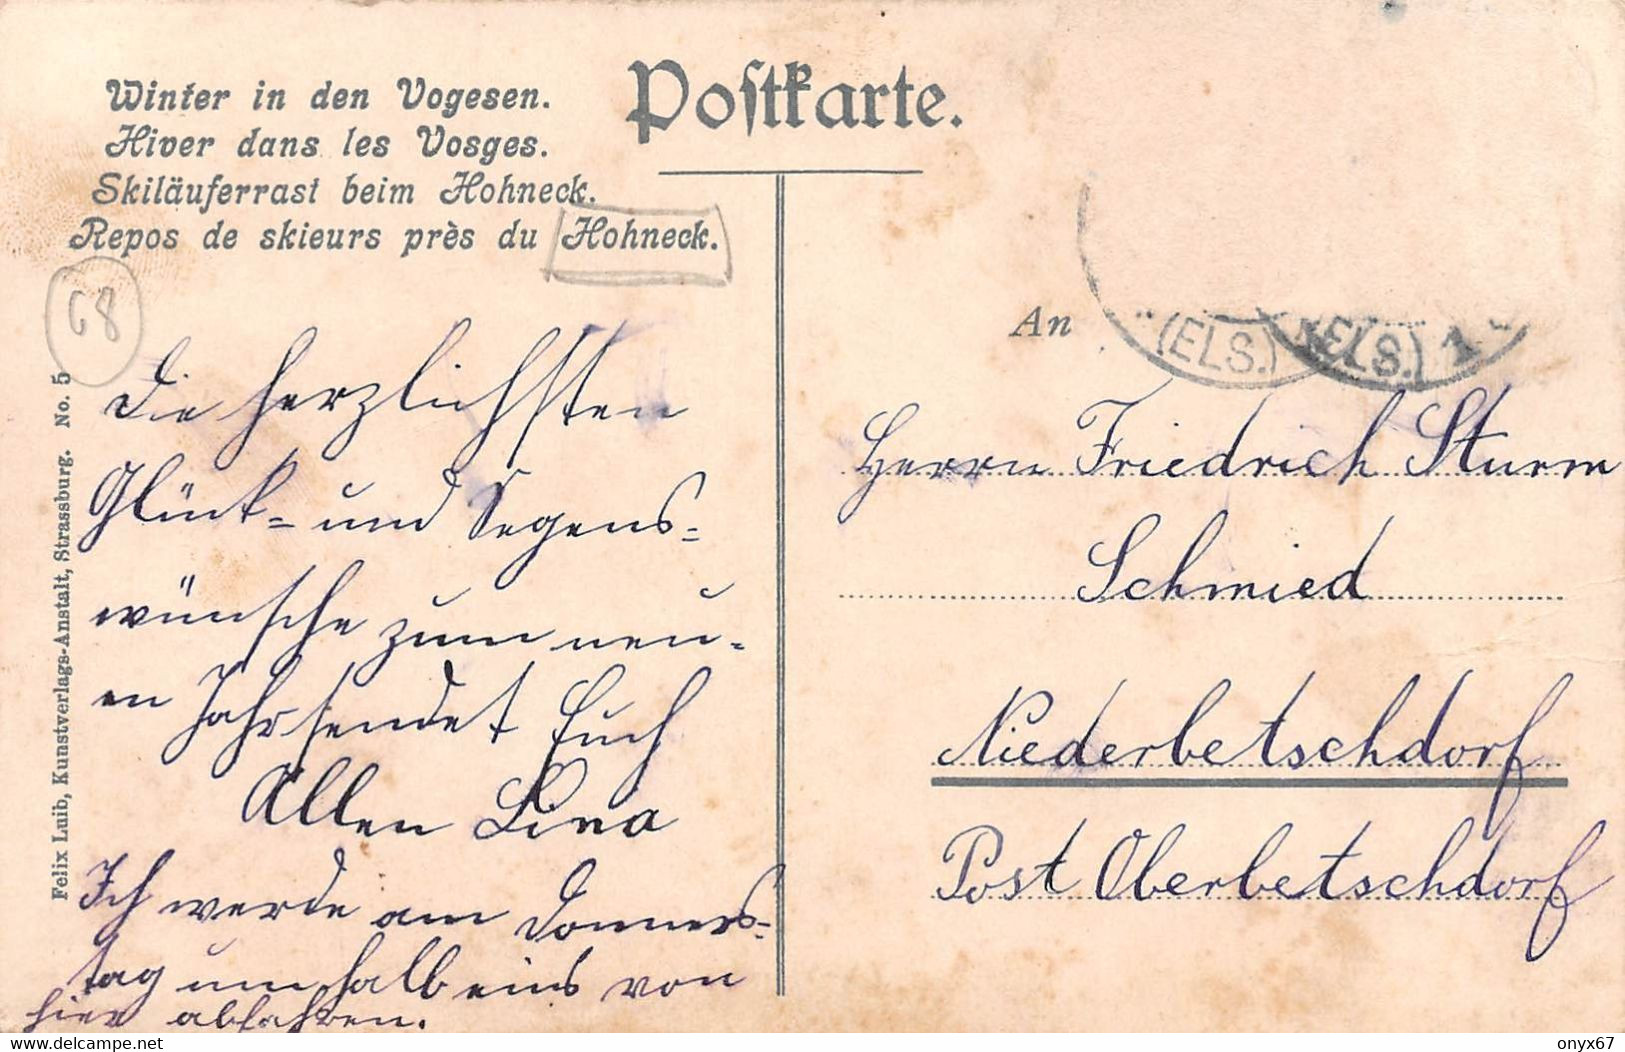 Winter in den Vogesen.
Hiver dans les Vosges.
Skiläuferrast beim Hohneck.
Repos de skieurs près du Hohneck.
Postkarte.
68
Felix Luib, Kunstverlags-Anstalt, Strassburg. No. 5
Die herzlichsten
Glück- und Segens=
wünsche zum neu-
en Jahr sendet Euch
Allen Lina
Ich werde am Donners=
tag um halb eins von
hier abfahren.
An
(ELS.) (ELS.) 1
Herrn Friedrich Sturm
Schmied
Niederbetschdorf
Post Oberbetschdorf
delcampe.net
onyx67